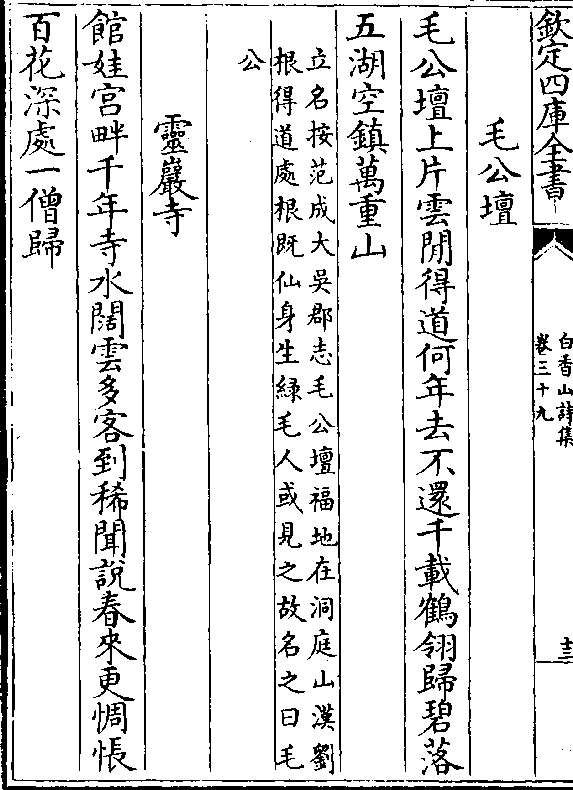 欽定四庫全書
白香山詩集
卷三十九
十三
毛公壇
毛公壇上片雲閒得道何年去不還千載鶴翎歸碧落
五湖空鎮萬重山
立名按范成大吳郡志毛公壇福地在洞庭山漢劉
根得道處根既仙身生綠毛人或見之故名之曰毛
公
靈巖寺
館娃宮畔千年寺水闊雲多客到稀聞說春來更惆悵
百花深處一僧歸